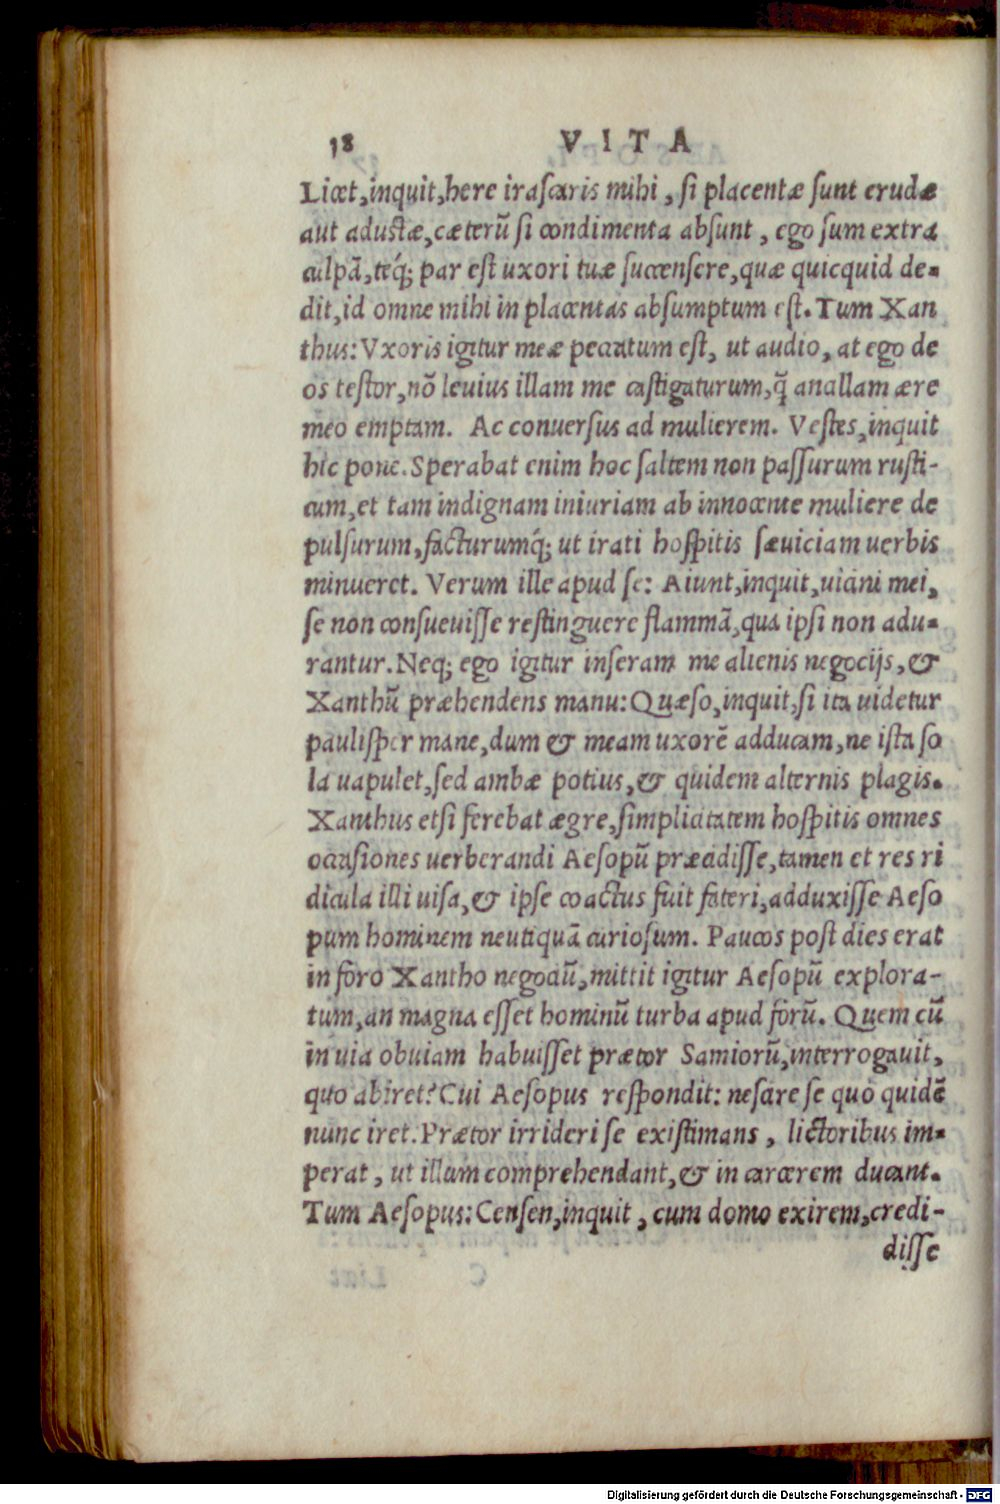 18 VITA
Licet, inquit, here irascaris mihi, si placentæ sunt crudæ
aut adustæ, cæterũ si condimenta absunt, ego sum extra
culpã, teq́; par est uxori tuæ succensere, quæ quicquid de-
dit, id omne mihi in placentas absumptum est. Tum Xan
thus: Vxoris igitur meæ peccatum est, ut audio, at ego de
os testor, nõ leuius illam me castigaturum, q̃ ancillam ære
meo emptam. Ac conuersus ad mulierem. Vestes, inquit
hic pone. Sperabat enim hoc saltem non passurum rusti-
cum, et tam indignam iniuriam ab innocente muliere de
pulsurum, facturumq́; ut irati hospitis sæuiciam uerbis
minueret. Verum ille apud se: Aiunt, inquit, uicini mei,
se non consueuisse restinguere flammã, qua ipsi non adu-
rantur. Neq; ego igitur inseram me alienis negocijs, &
Xanthũ præhendens manu: Quæso, inquit, si ita uidetur
paulisper mane, dum & meam uxorẽ adducam, ne ista so
la uapulet, sed ambæ potius, & quidem alternis plagis.
Xanthus etsi ferebat ægre, simplicitatem hospitis omnes
occasiones uerberandi Aesopũ præcidisse, tamen et res ri
dicula illi uisa, & ipse coactus fuit fateri, adduxisse Aeso
pum hominem neutiquã curiosum. Paucos post dies erat
in foro Xantho negociũ, mittit igitur Aesopũ explora-
tum, an magna esset hominũ turba apud forũ. Quem cũ
in uia obuiam habuisset prætor Samiorũ, interrogauit,
quo abiret? Cui Aesopus respondit: nescire se quò quidẽ
nunc iret. Prætor irrideri se existimans, lictoribus im-
perat, ut illum comprehendant, & in carcerem ducant.
Tum Aesopus: Censen, inquit, cum domo exirem, credi-
disse
Digitalisierung gefördert durch die Deutsche Forschungsgemeinschaft - DFG